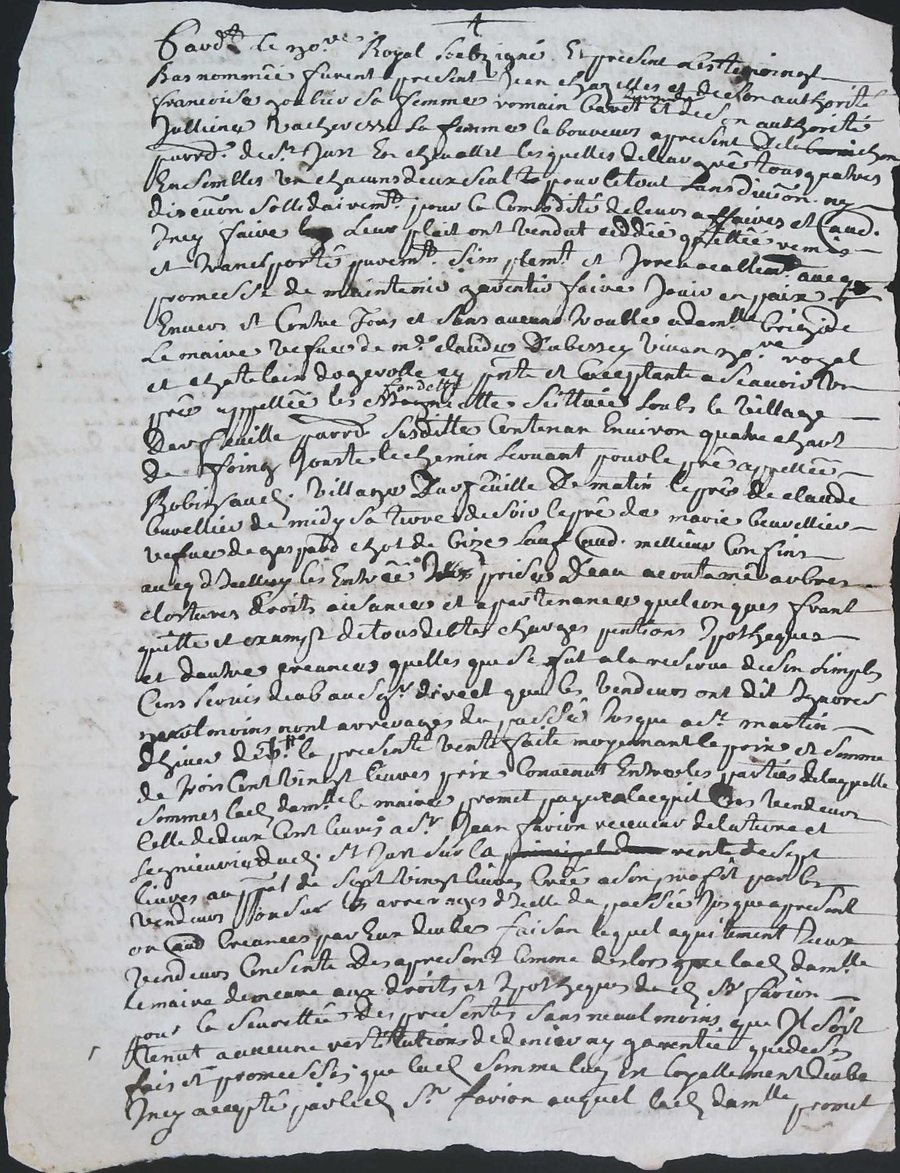 Pardt le no.re Royal soubsigné Et présent les tesmoingt
bas nommée furent présent Jean chazelles et de son authorité
francoise sa femme romain et de son authorité
Julliene Vacheresse sa femme laboureurs a present
parr. de st Just En chevallet lesquelles de leur gré tous quatres
Ensembles Un chacuns deux seal pour le tout sans division ny
discution sollidairemt pour la Comodité de leurs affaires et Caud.
Incy faire leur plait ont vendut ceddée quittée remis
et transportée puremt simplemt et Irrevocallemt avecq
promesse de maintenir garentir faire Jouir en paix
Envers et Contre Tous et sans aucune trouble a damlle
Le maire vefue de me claude Dubessey vivan no.re royal
et chatelain dogerolle cy pnte et acceptante a scavoir Un
pré appellée les sittuée soubs le village
Durfeuille parr susditte Contenan Environ quatre chart
de foing Jouxte le chemin Leouant pour le pré appellée
Robin saud. Village Durfeuille De matin le pré de claude
de midy sa terre de soir le pré de marie
vefue de gaspard chot de bize sauf Caud. mellieur Confins
avecq d'Icelluy les Entrée prise d'eau acoutumé arbres
clostures droits aisances et apartenances quelconques frant
quitte et exampt de tous debtes charges pentions Ipotheques
et dautre creances quelles que se fut a la reserve de sin simples
Cens servis deub au sgr direct que les vendeurs ont dit
neaulmoins nont arrerages du passée Jusque a st martin
dhiver la presente vente faite moyennant le prix et somme
de trois Cent vingt livres prix Convenut Entre les parties de laquelle
somme lad damlle le maire promet payer a lacquit des vendeurs
Celle de deux Cent livres a sr Jean farion receveur de la terre et
seigneurie dud. st Just sur la rente de sept
livres au ppal de sept vingt livres Créé a son profit par les
vendeurs ou sur les arrerages dicelle du passée Jusque a present
ou Caud Creances par Eux deubes faisan lequel aquitement Iceux
vendeurs Consente Des apresent Comme des lors que lad damlle
le maire demeure aux droits et Ipotheques dud sr farion
pour la seurettée des presentes sans neaulmoins que Il soit
tenut aucune restitutions de deniers ny garentie que de ses
fais et promesses que lad somme luy est loyallement deube
Incy accepté par led sr farion auquel lad damlle promet